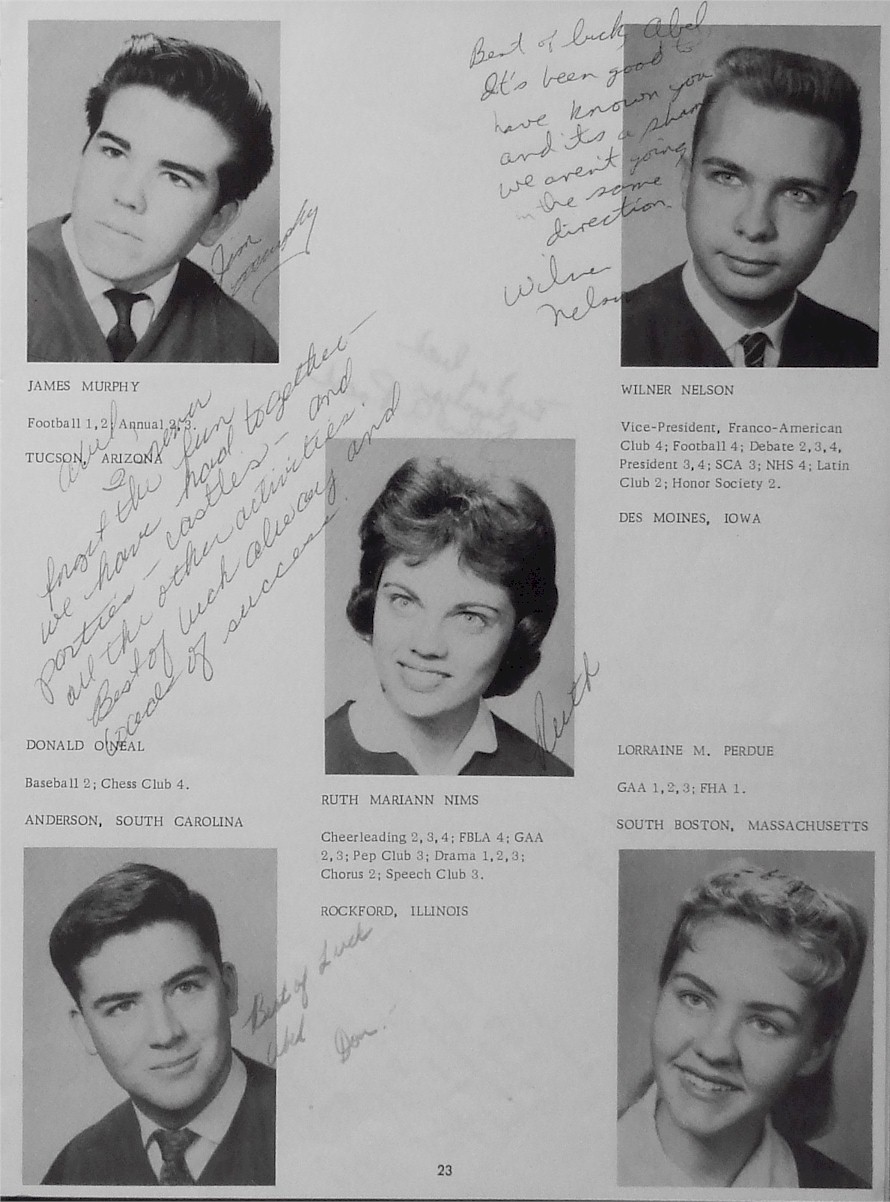 Best of luck, Abel
It's been good to
have known you
and it's a shame
we aren't going
in the same
direction.
Wilner
Nelson
Jim
Murphy
JAMES MURPHY
Football 1,2; Annual 2,3.
TUCSON, ARIZONA
WILNER NELSON
Vice-President, Franco-American
Club 4; Football 4; Debate 2,3,4,
President 3,4; SCA 3; NHS 4; Latin
Club 2; Honor Society 2.
DES MOINES, IOWA
Abel,
I never
forget the fun
we have had together -
parties - castles - and
all the other activities.
Best of luck always and
loads of success.
Ruth
DONALD O'NEAL
Baseball 2; Chess Club 4.
ANDERSON, SOUTH CAROLINA
RUTH MARIANN NIMS
Cheerleading 2,3,4; FBLA 4; GAA
2,3; Pep Club 3; Drama 1,2,3;
Chorus 2; Speech Club 3.
ROCKFORD, ILLINOIS
LORRAINE M. PERDUE
GAA 1,2,3; FHA 1.
SOUTH BOSTON, MASSACHUSETTS
Best of Luck
Abel
Don.-
23